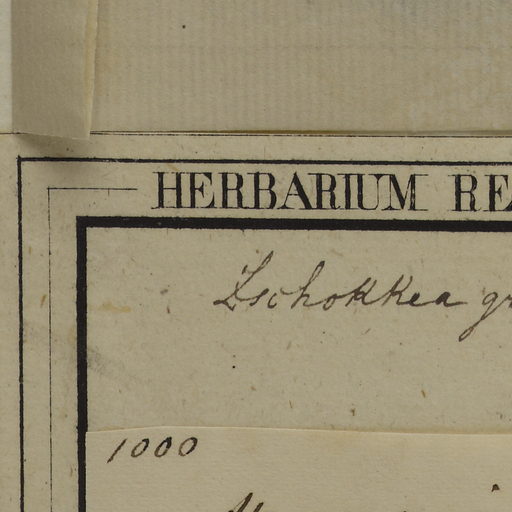 HERBARIUM RE
Zschokkea gr
1000